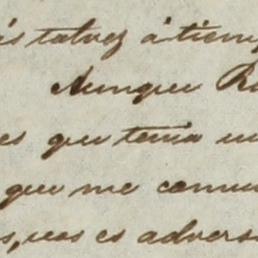 ás talvez á tiemp
Aunque R
es que tenia un
que me comu
s, nos es advers